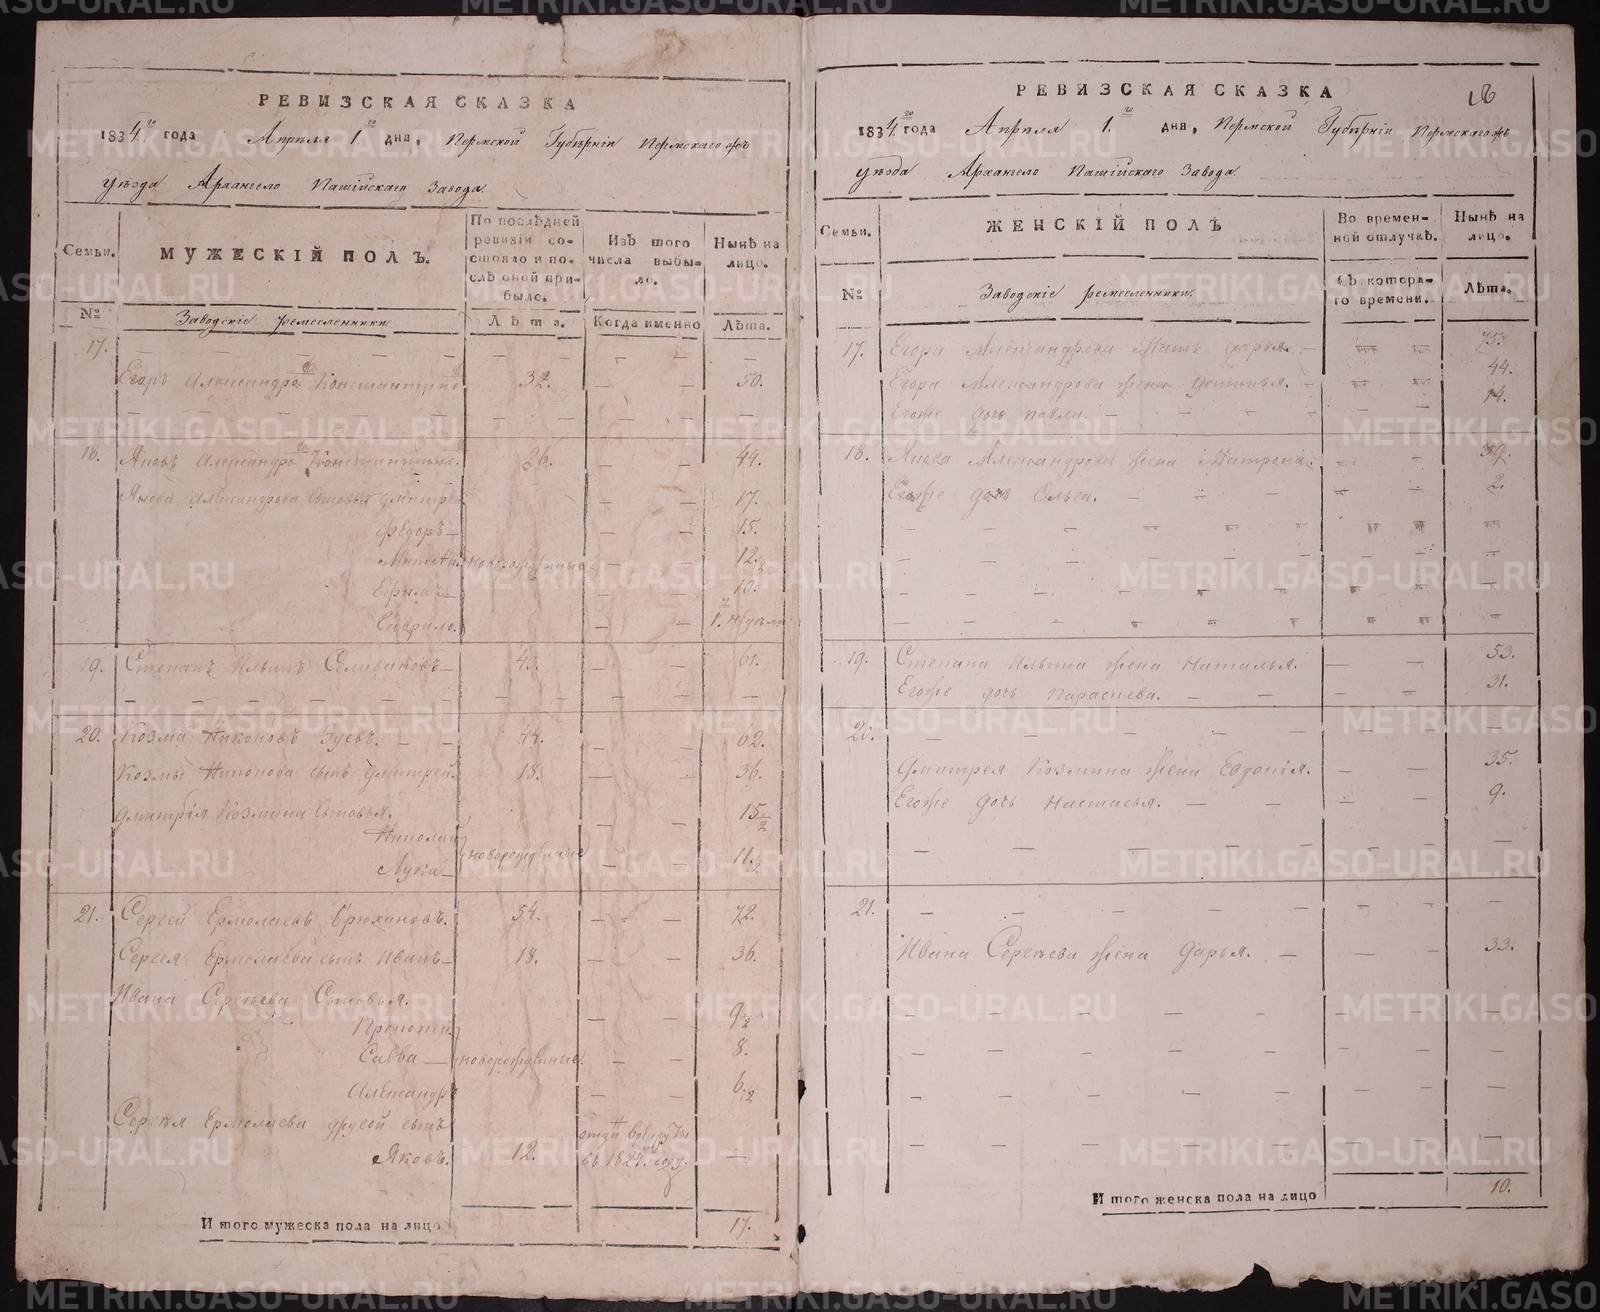 РЕВИЗСКАЯ СКАЗКА
1834 го года Апрѣля 1 го дня, Пермской Губѣрніи Пермскаго жъ
уѣзда Архангело Пашійскаго Завода.
Семьи.
МУЖЕСКІЙ ПОЛЪ.
По послѣдней ревизіи состояло и послѣ оной прибыло.
Изъ того числа выбыло.
Нынѣ на лицо.
№
Заводскіе ремесленники
Лѣта.
Когда именно
Лѣта.
17. — — — — —
Егоръ Александровъ 32. — — 50.
— — — — —
18. Александровъ 26. — — 44.
Александрова сыновья Дмитрей — — 17.
Федоръ — — — 15.
новорожденные — — 12.
— — 10.
Гаврило. — — недели
19. Степанъ Ильинъ Селивановъ — 43. — — 61.
— — — — —
20. Козма Никоновъ — — 44. — — 62.
Козмы Никонова сынъ Дмитрей. 18. — — 36.
Дмитрія Козмина сыновья. — — 15 1/2
Николай
новорожденные
Лука — — — 11.
21. Сергей Ермолаевъ Брюхановъ. 54. — — 72.
Сергея Ермолаева сынъ Иванъ — 18. — — 36.
Ивана Сергѣева Сыновья.
Прокопей — — 9 1/2
Савва — новорожденные. — — 8.
Александръ — — 6/12
Сергѣя Ермолаева другой сынъ
Яковъ. 12. отдан в рекруты въ 1827 году. —
Итого мужеска пола на лицо 17.
РЕВИЗСКАЯ СКАЗКА
1834 го года Апрѣля 1. го дня, Пермской Губѣрніи Пермскаго жъ
уѣзда Архангело Пашійскаго Завода.
Семьи.
ЖЕНСКІЙ ПОЛЪ
Во временной отлучкѣ.
Нынѣ на лицо.
№
Заводскіе ремесленники.
Съ котораго времени.
Лѣта.
17. Егора Александрова Мать Дарья — — — 75.
Егора Александрова жена — — — 44.
Егоже дочь — — — 14.
18. Александрова жена Матрена — — 39.
Егоже дочь Ольга. — — — 2.
19. Степана Ильина жена Наталья. — — 53.
Егоже дочь Параскева. — — — 31.
20. — — — — —
Дмитрея Козмина жена Евдокія. — — 35.
Егоже дочь Настасья. — — — 9.
21. — — — — —
Ивана Сергѣева жена Дарья. — — 33.
Итого женска пола на лицо 10.
METRIKI.GASO-URAL.RU